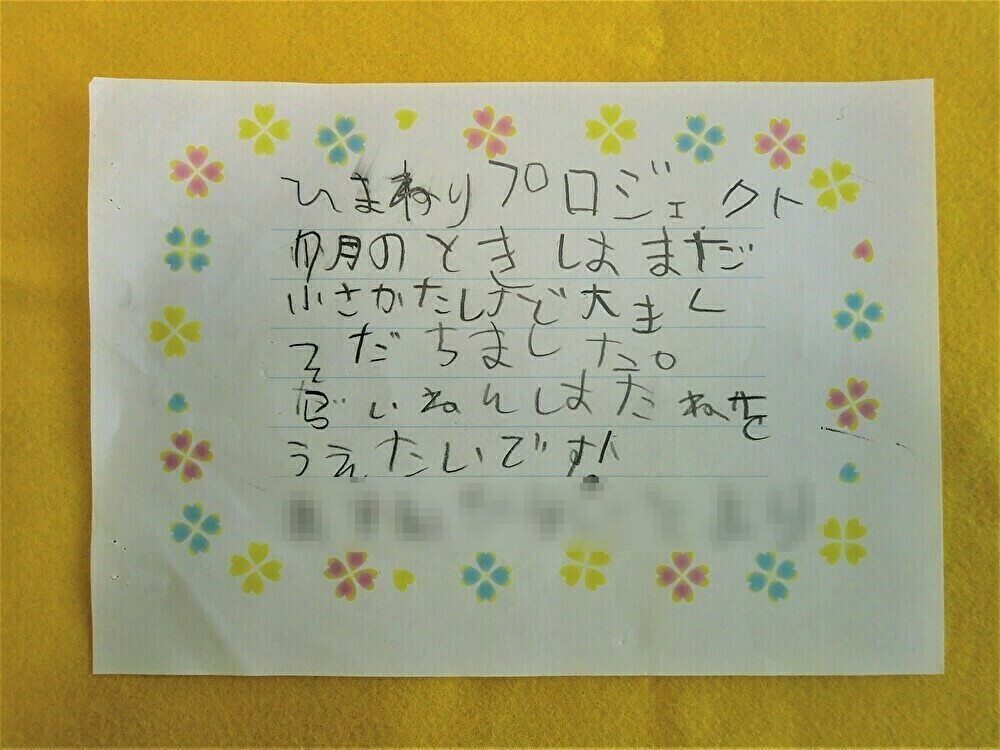 ひまわりプロジェクト
月のときはまだ
小さかたけど大きく
そだちました。
いねんはたねを
うえたいです